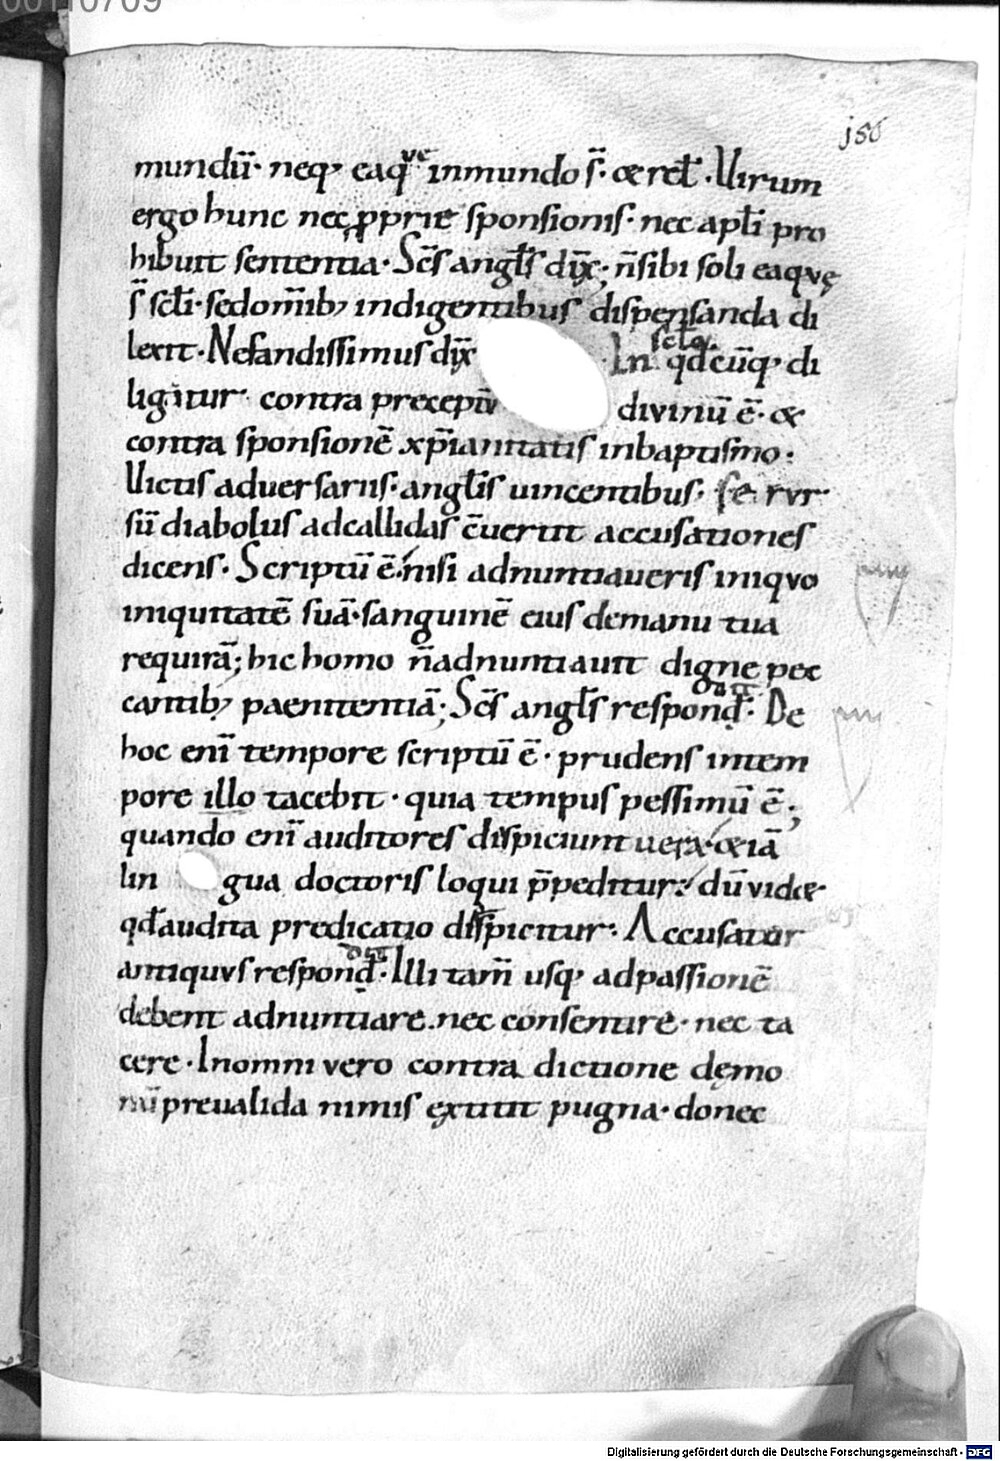 00110709
j56
mundū· neq; eaq̄ ue inmundo s̄· & rel̄· Uirum
ergo hunc nec ꝓprie sponsionis· nec apl̄i pro
hibuit sententia· Sc̄s angl̄s dix̄; n̄ sibi soli eaquę
s̄ scl̄i· sed om̄ib; indigentibus dispensanda di
lexit· Nefandissimus dix̄ In sclo· qd̄cūq; di
ligitur· contra preceptū divinū ē· &
contra sponsionē xp̄ianitatis inbaptismo·
Uictis adversariis· angl̄is uincentibus· se rur
sū diabolus adcallidas c̄uertit accusationes
dicens· Scriptū ē· nisi adnuntiaveris iniquo
iniquitatē suā· sanguinē eius demanu tua
requirā; hic homo n̄ adnuntiauit digne pec
cantib; paenitentiā; Sc̄s angl̄s respond̄· De
hoc enī tempore scriptū ē· prudens intem
pore illo tacebit· quia tempus pessimū ē;
quando enī auditores dispiciunt uera· & iā
lin gua doctoris loqui p̄peditur· dū vid&·
qd̄ audita predicatio dispicitur· Accusator
antiquus respond̄· Illi tam̄ usq; adpassionē
debent adnuntiare· nec consentire· nec ta
cere· Inomni vero contra dictione dęmo
nū prevalida nimis extitit pugna· donec
Digitalisierung gefördert durch die Deutsche Forschungsgemeinschaft - DFG